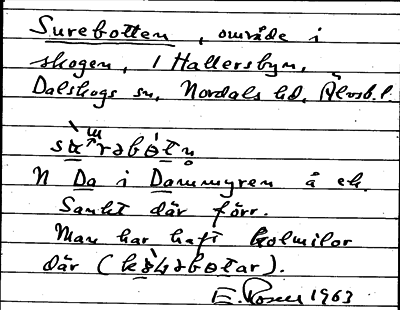 Surebotten, område i
skogen, i Hallersbyn,
Dalskogs sn, Nordals hd, Älvsb.l.
N Da i Dammyren å ek.
Sankt där förr.
Man har haft kolmilor
där
E. Rosen 1963